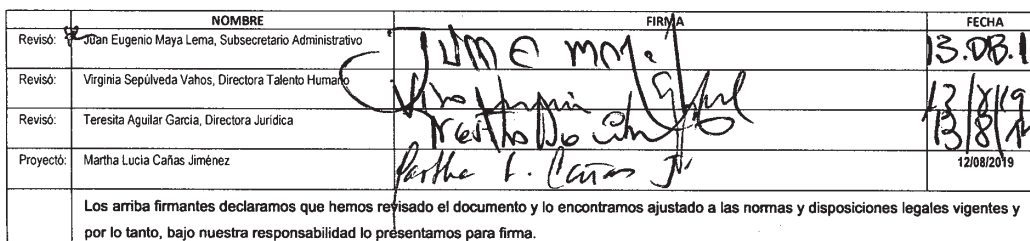 NOMBRE FIRMA FECHA
Revisó: Juan Eugenio Maya Lema, Subsecretario Administrativo
Revisó: Virginia Sepúlveda Vahos, Directora Talento Humano 13/8/19
Revisó: Teresita Aguilar Garcia, Directora Jurídica 13/8/
Proyectó: Martha Lucia Cañas Jiménez Martha L. Cañas J. 12/08/2019
Los arriba firmantes declaramos que hemos revisado el documento y lo encontramos ajustado a las normas y disposiciones legales vigentes y
por lo tanto, bajo nuestra responsabilidad lo presentamos para firma.